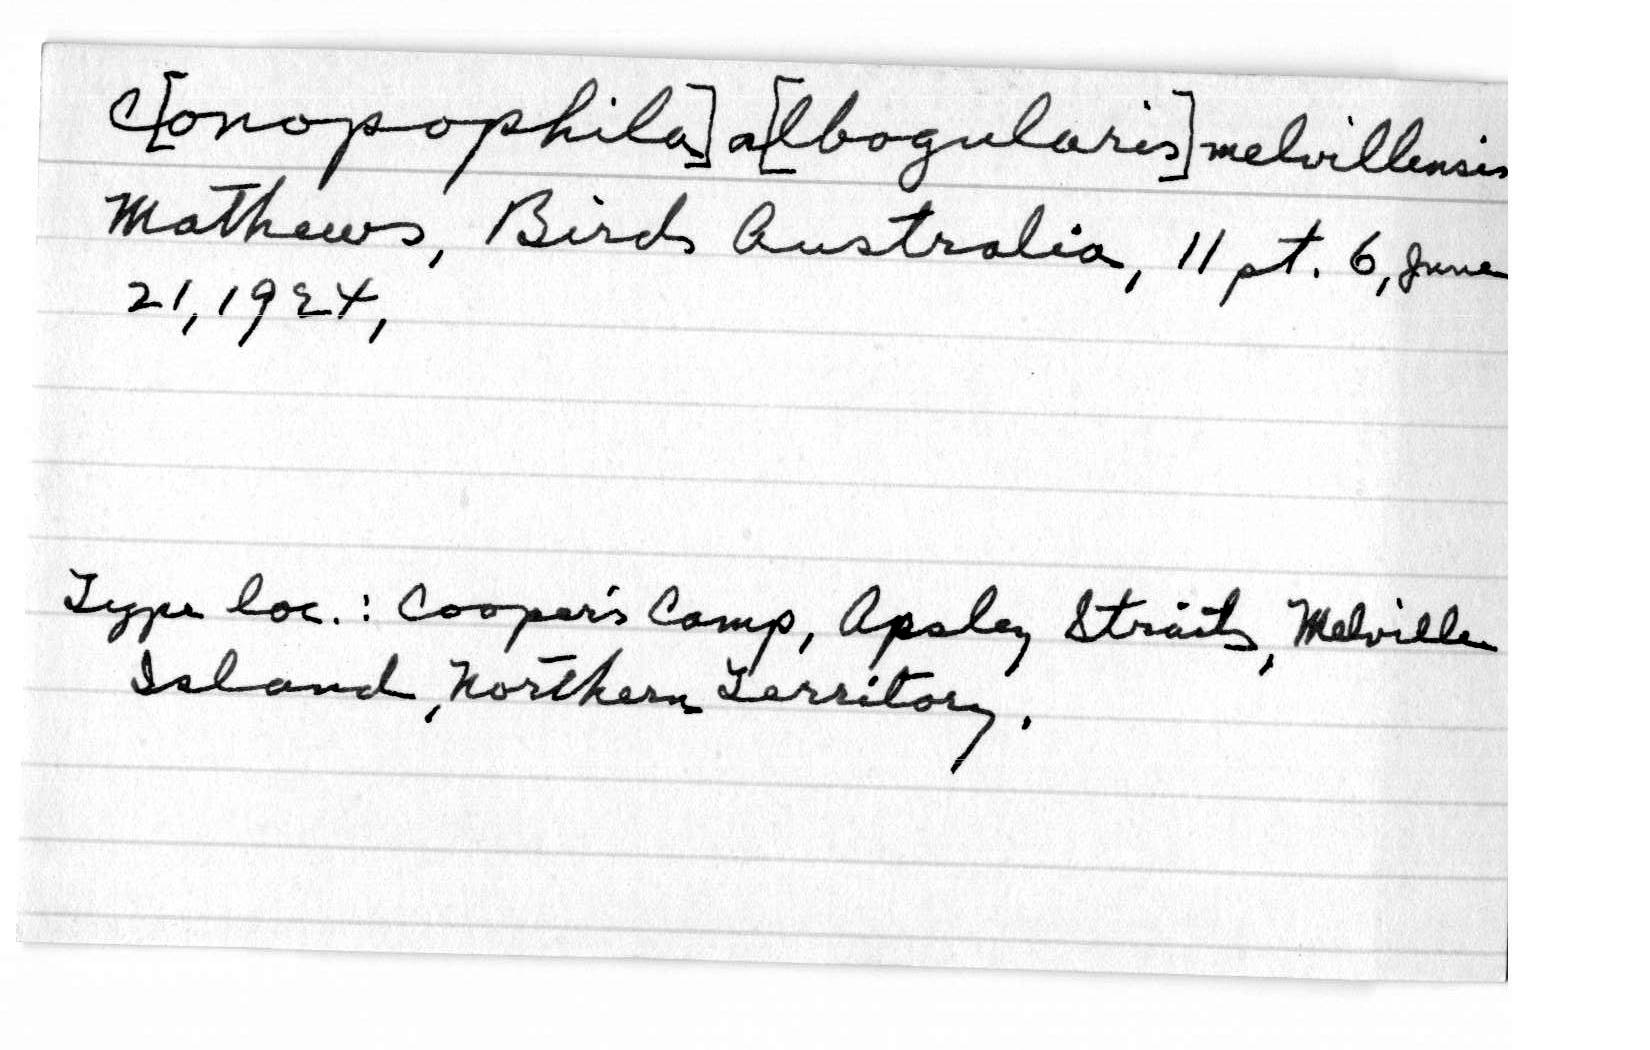 C[onopophila] a[lbogularis] melvillensis
Mathews, Birds Australia, 11 pt. 6, June
21, 1924,
Type loc.: Cooper's Camp, Apsley Straits, Melville
Island, Northern Territory.